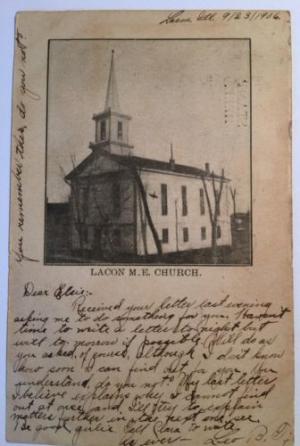 Lacon Ill. 9/23/1906.
You remember this, do you not?
LACON M.E. CHURCH.
Dear Elsie:-
Received your letter last evening
asking me to do something for you. Haven't
time to write a letter to-night but
will to-morrow if possible. Will do as
you asked, of course, although I don't know
how soon I can find out for you. You
understand, do you not? My last letter,
I believe explains why I cannot find
out at once, and I'll try to explain
matters further in my next one.
Be good, Tell to write.
As ever-